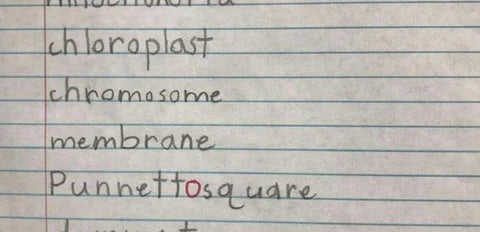 chloroplast
chromosome
membrane
Punnettosquare